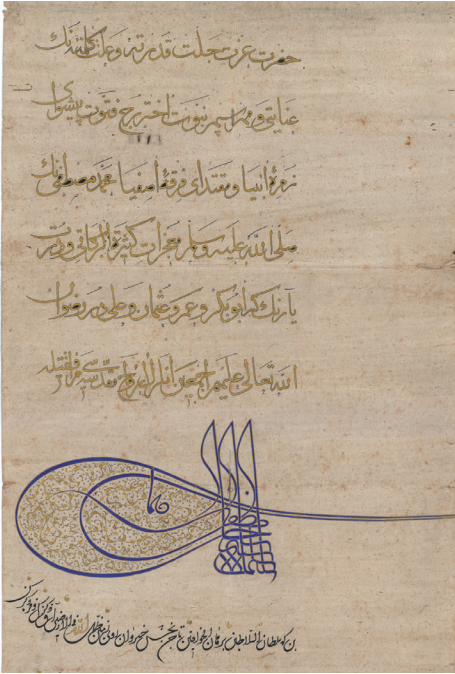 حضرت عزت جلت قدرته وعلت كلمته نك
عنايتى و مهر سپهر نبوت اختر برج فتوت پيشواى
زمرۀ انبيا و مقتداى فرقۀ اصفيا محمد مصطفى نك
صلى الله عليه وسلم معجزات كثيرة البركاتى و درت
يارينك كه ابو بكر و عمر و عثمان و على در رضوان
الله تعالى عليهم اجمعين انلرك ارواح مقدسه سى مرافقتيله
بن كه سلطان السلاطين برهان الخواقين تاج بخش خسروان روى زمين ظل الله فى الارضين آق دكزك و قره دكزك